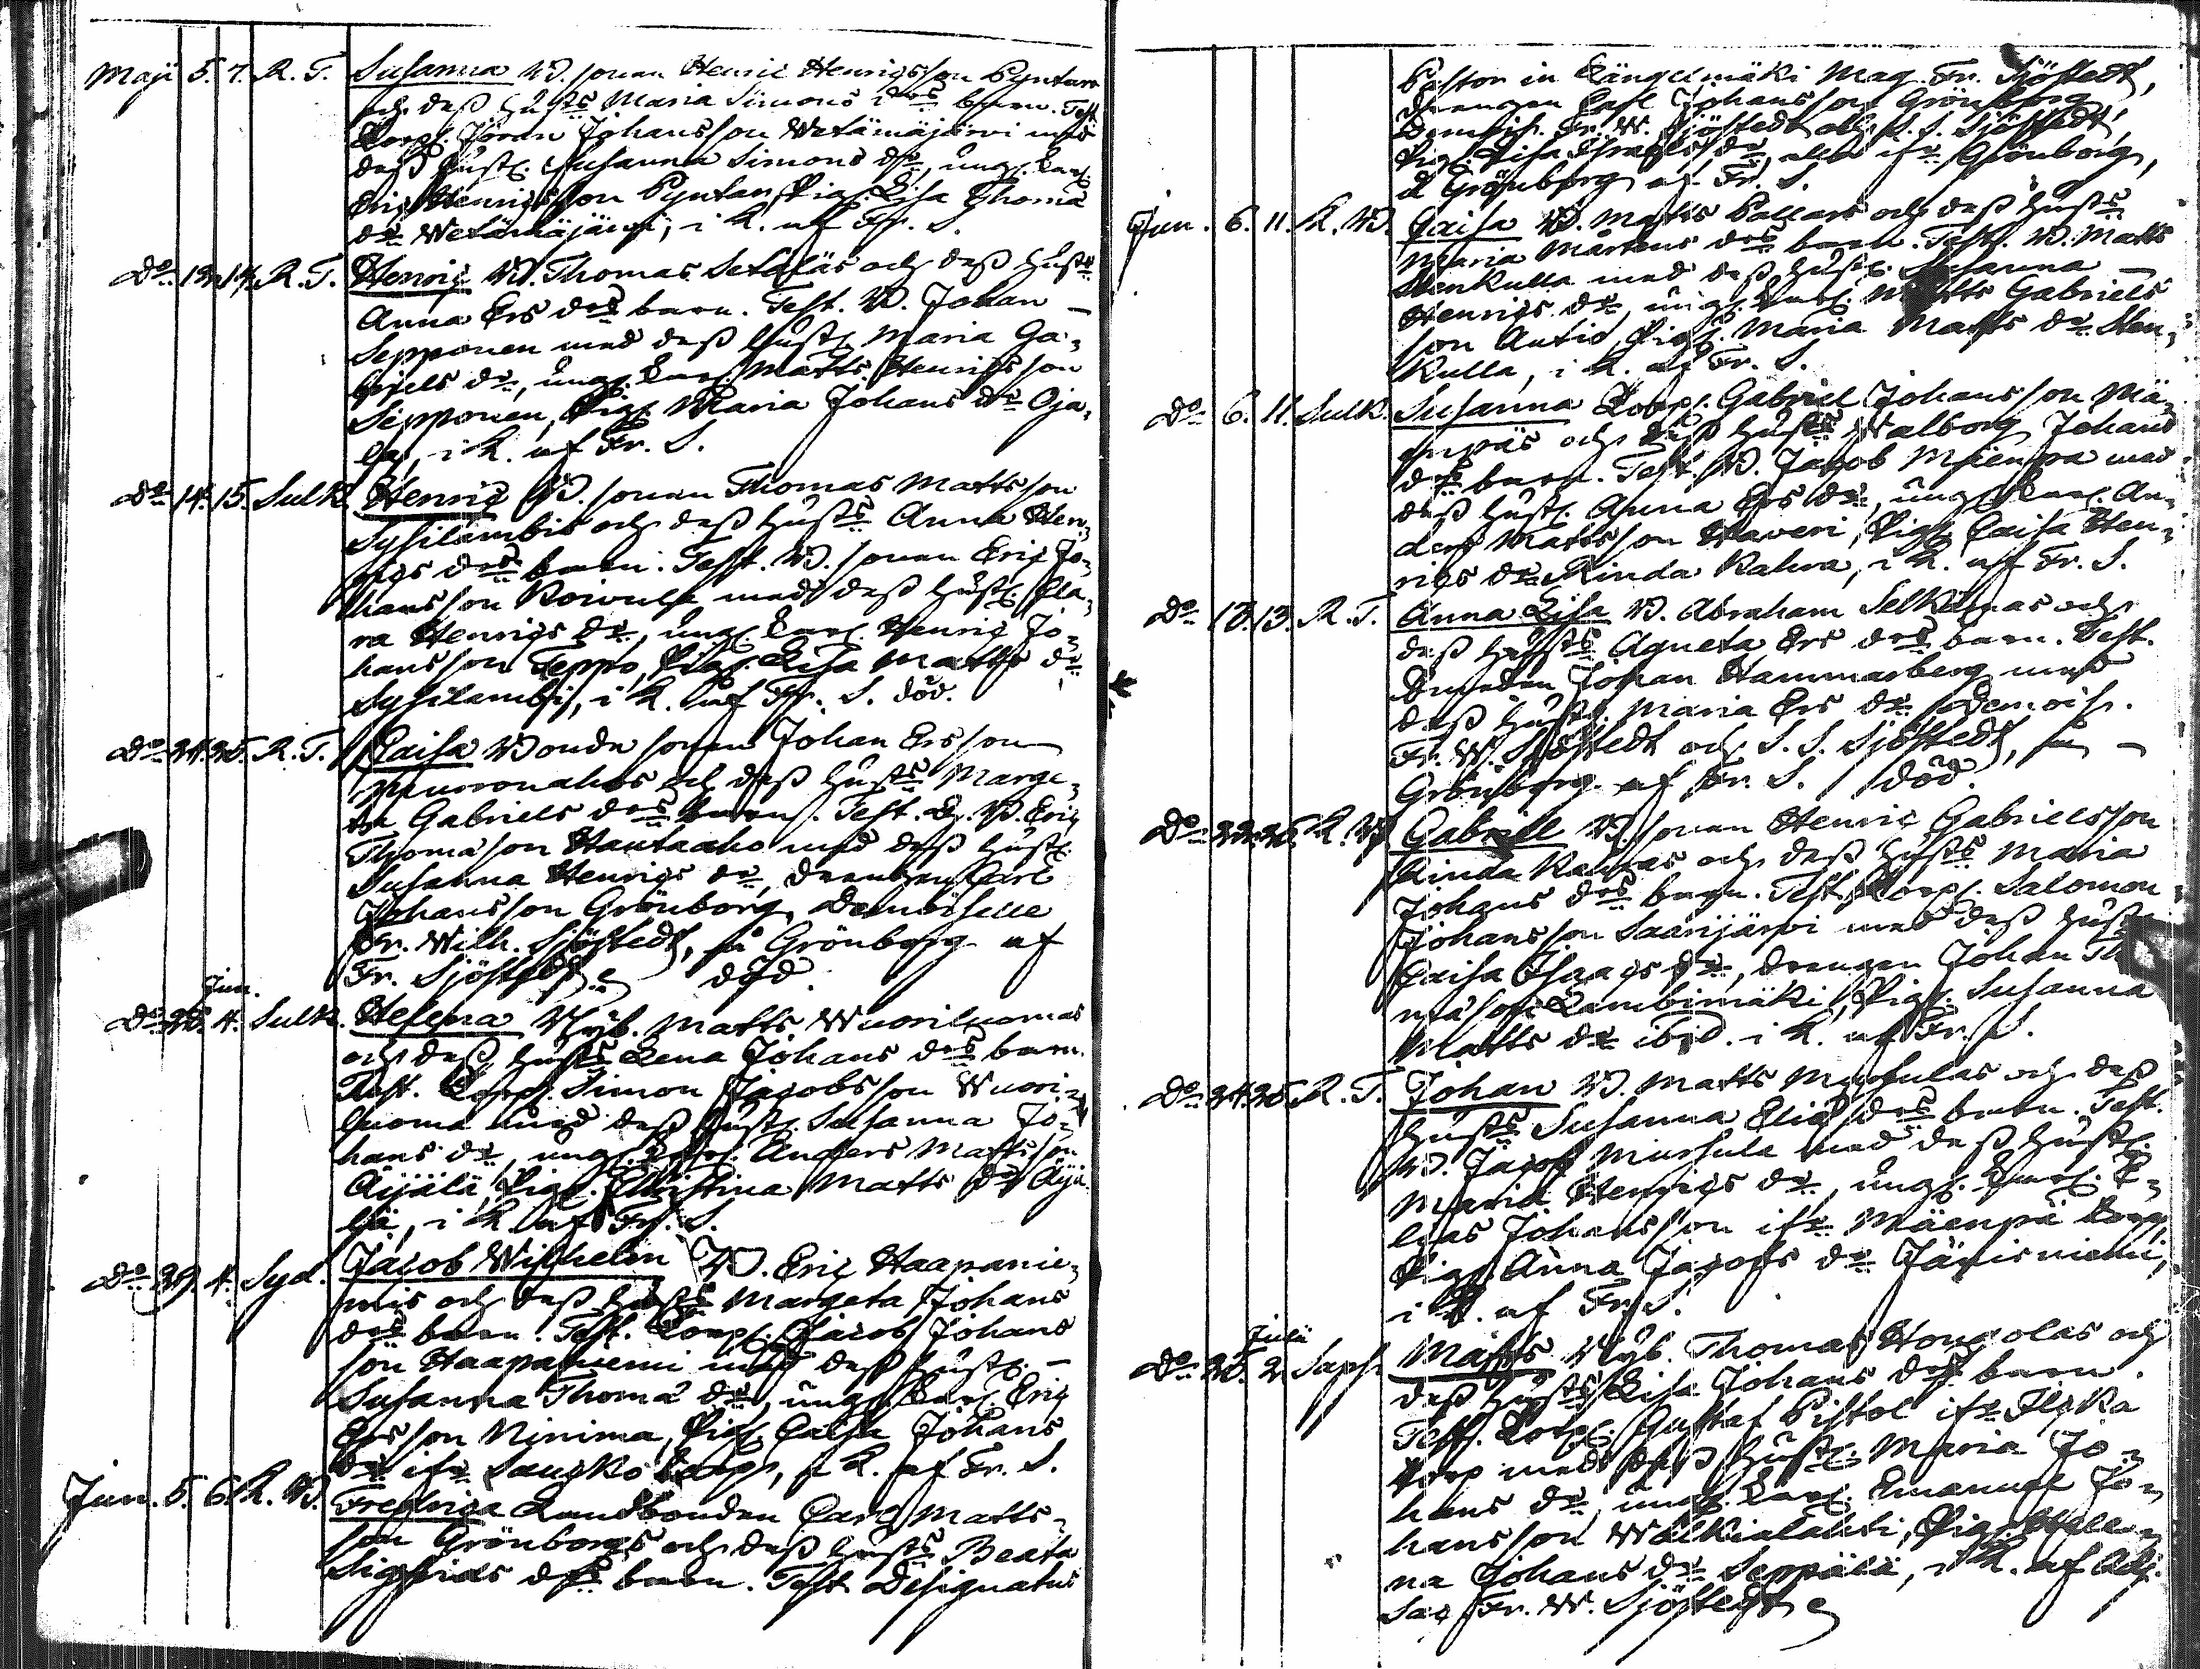 Maji 5. 7. R. T. Susanna B. sonen Henric Henricsson Pyntars
och dess hust:s Maria Simons d:rs barn. Test.
Corp. Jöran Johansson Wetämäjärvi med
dess hust. Susanna Simons d:r, ung. karl.
Eric Henricsson Pyntar, Pig. Lisa Thoma
d:r Wetämäjärvi, i K. af Fr. S.
D:o 13. 14. R. T. Henric B. Thomas Setäläs och dess hust:s
Anna Ers d:rs barn. Test. B. Johan
Sepponen med dess hust. Maria Ga-
briels d:r, ung. karl. Matts Henricsson
Sepponen, Pig. Maria Johans d:r Oja-
la, i K. af Fr. S.
D:o 14. 15. Sulk. Henric B. sonen Thomas Mattsson
Sysilambis och dess hust:s Anna Hen-
rics d:rs barn. Test. B. sonen Eric Jo-
hansson Koivula med dess hust. Cla-
ra Henrics d:r, ung. karl. Henric Jo-
hansson Seppo, Pig. Lisa Matts d:r
Sysilambi, i K. af Fr. S. död.
D:o 24. 25. R. T. Caisa Bonde sonen Johan Ersson
Muuronahos och dess hust:s Marge-
ta Gabriels d:rs barn. Test. B. Eric
Thomasson Hautaaho med dess hust.
Susanna Henrics d:r, drengen Carl
Johansson Grönborg, Demoiselle
Fr. Wilh. Sjöstedt, på Grönborg af
Fr. Sjöstedt död.
Jun.
D:o 28. 4. Sulk. Helena Nyb. Matts Wuoriluomas
och dess hust:s Lena Johans d:rs barn.
Test. Corp. Simon Jacobsson Wuori-
luoma med dess hust. Susanna Jo-
hans d:r, ung. karl. Anders Mattsson
Äijälä, Pig. Christina Matts d:r Äijä-
lä, i K. af Fr. S.
D:o 29. 4. Syd. Jacob Wilhelm B. Eric Haapanie-
mis och dess hust:s Margeta Johans
d:rs barn. Test. Corp. Jacob Johans
son Haapaniemi med dess hust.
Susanna Thoma d:r, ung. karl. Eric
Ersson Ninima, Pig. Caisa Johans
d:r ifr. Sauko torp, i K. af Fr. S.
Jun. 5. 6. K. B. Fredrica Landbonden Carl Matts-
son Grönborgs och dess hust:s Beata
Sigfrids d:rs barn. Test. Designatus
Pastor in Längelmäki Mag. Fr. Sjöstedt,
drengen Carl Johansson Grönborg,
Demois. Fr. W. Sjöstedt och S. S. Sjöstedt,
Pig. Lisa Israels d:r, alla ifr. Grönborg,
å Grönborg af Fr. S.
Jun. 6. 11. K. B. Caisa B. Matts Pallars och dess hust:s
Maria Mårtens d:rs barn. Test. B. Matts
Stenkulla med dess hust. Susanna
Henrics d:r, ung. karl. Matts Gabriels
son Autio, Pig. Maria Matts d:r Sten-
kulla, i K. af Fr. S.
D:o 6. 11. Sulk. Susanna Corp. Gabriel Johansson Mä-
enpäs och dess hust:s Walborg Johans
d:rs barn. Test. B. Jacob Mäenpä med
dess hust. Anna Ers d:r, ung. karl. An-
ders Mattsson Haveri, Pig. Caisa Hen-
rics d:r Rinda Kahra, i K. af Fr. S.
D:o 12. 13. R. T. Anna Lisa B. Abraham Selkämas och
dess hust:s Agneta Ers d:rs barn. Test.
Smeden Johan Hammarberg med
dess hust. Maria Ers d:r, Demois.
Fr. W. Sjöstedt och S. S. Sjöstedt, på
Grönborg af Fr. S. död.
D:o 22. 25. K. B. Gabriel B. sonen Henric Gabrielsson
Rinda Kahras och dess hust:s Maria
Johans d:rs barn. Test. Corp. Salomon
Johansson Saarijärvi med dess hust.
Caisa Isaacs d:r, drengen Johan Tho
masson Lambimäki, Pig. Susanna
Matts d:r ibid. i K. af Fr. S.
D:o 24. 25. R. T. Johan B. Matts Mursulas och dess
hust:s Susanna Elias d:rs barn. Test.
B. Jacob Mursula med dess hust.
Maria Henrics d:r, ung. karl. E-
lias Johansson ifr. Mäenpä torp,
Pig. Anna Jacobs d:r Jänisniemi,
i K. af Fr. S.
Julii
D:o 25. 2. Saph. Matts Nyb. Thomas Hongolas och
dess hust:s Lisa Johans d:rs barn.
Test. Corp. Gustaf Pistol ifr. Ilska
torp med dess hust. Maria Jo-
hans d:r, ung. karl. Emanuel Jo-
hansson Wälkialahti, Pig. Hele-
na Johans d:r Seppälä, i K. af Adj.
Sac. Fr. W. Sjöstedt